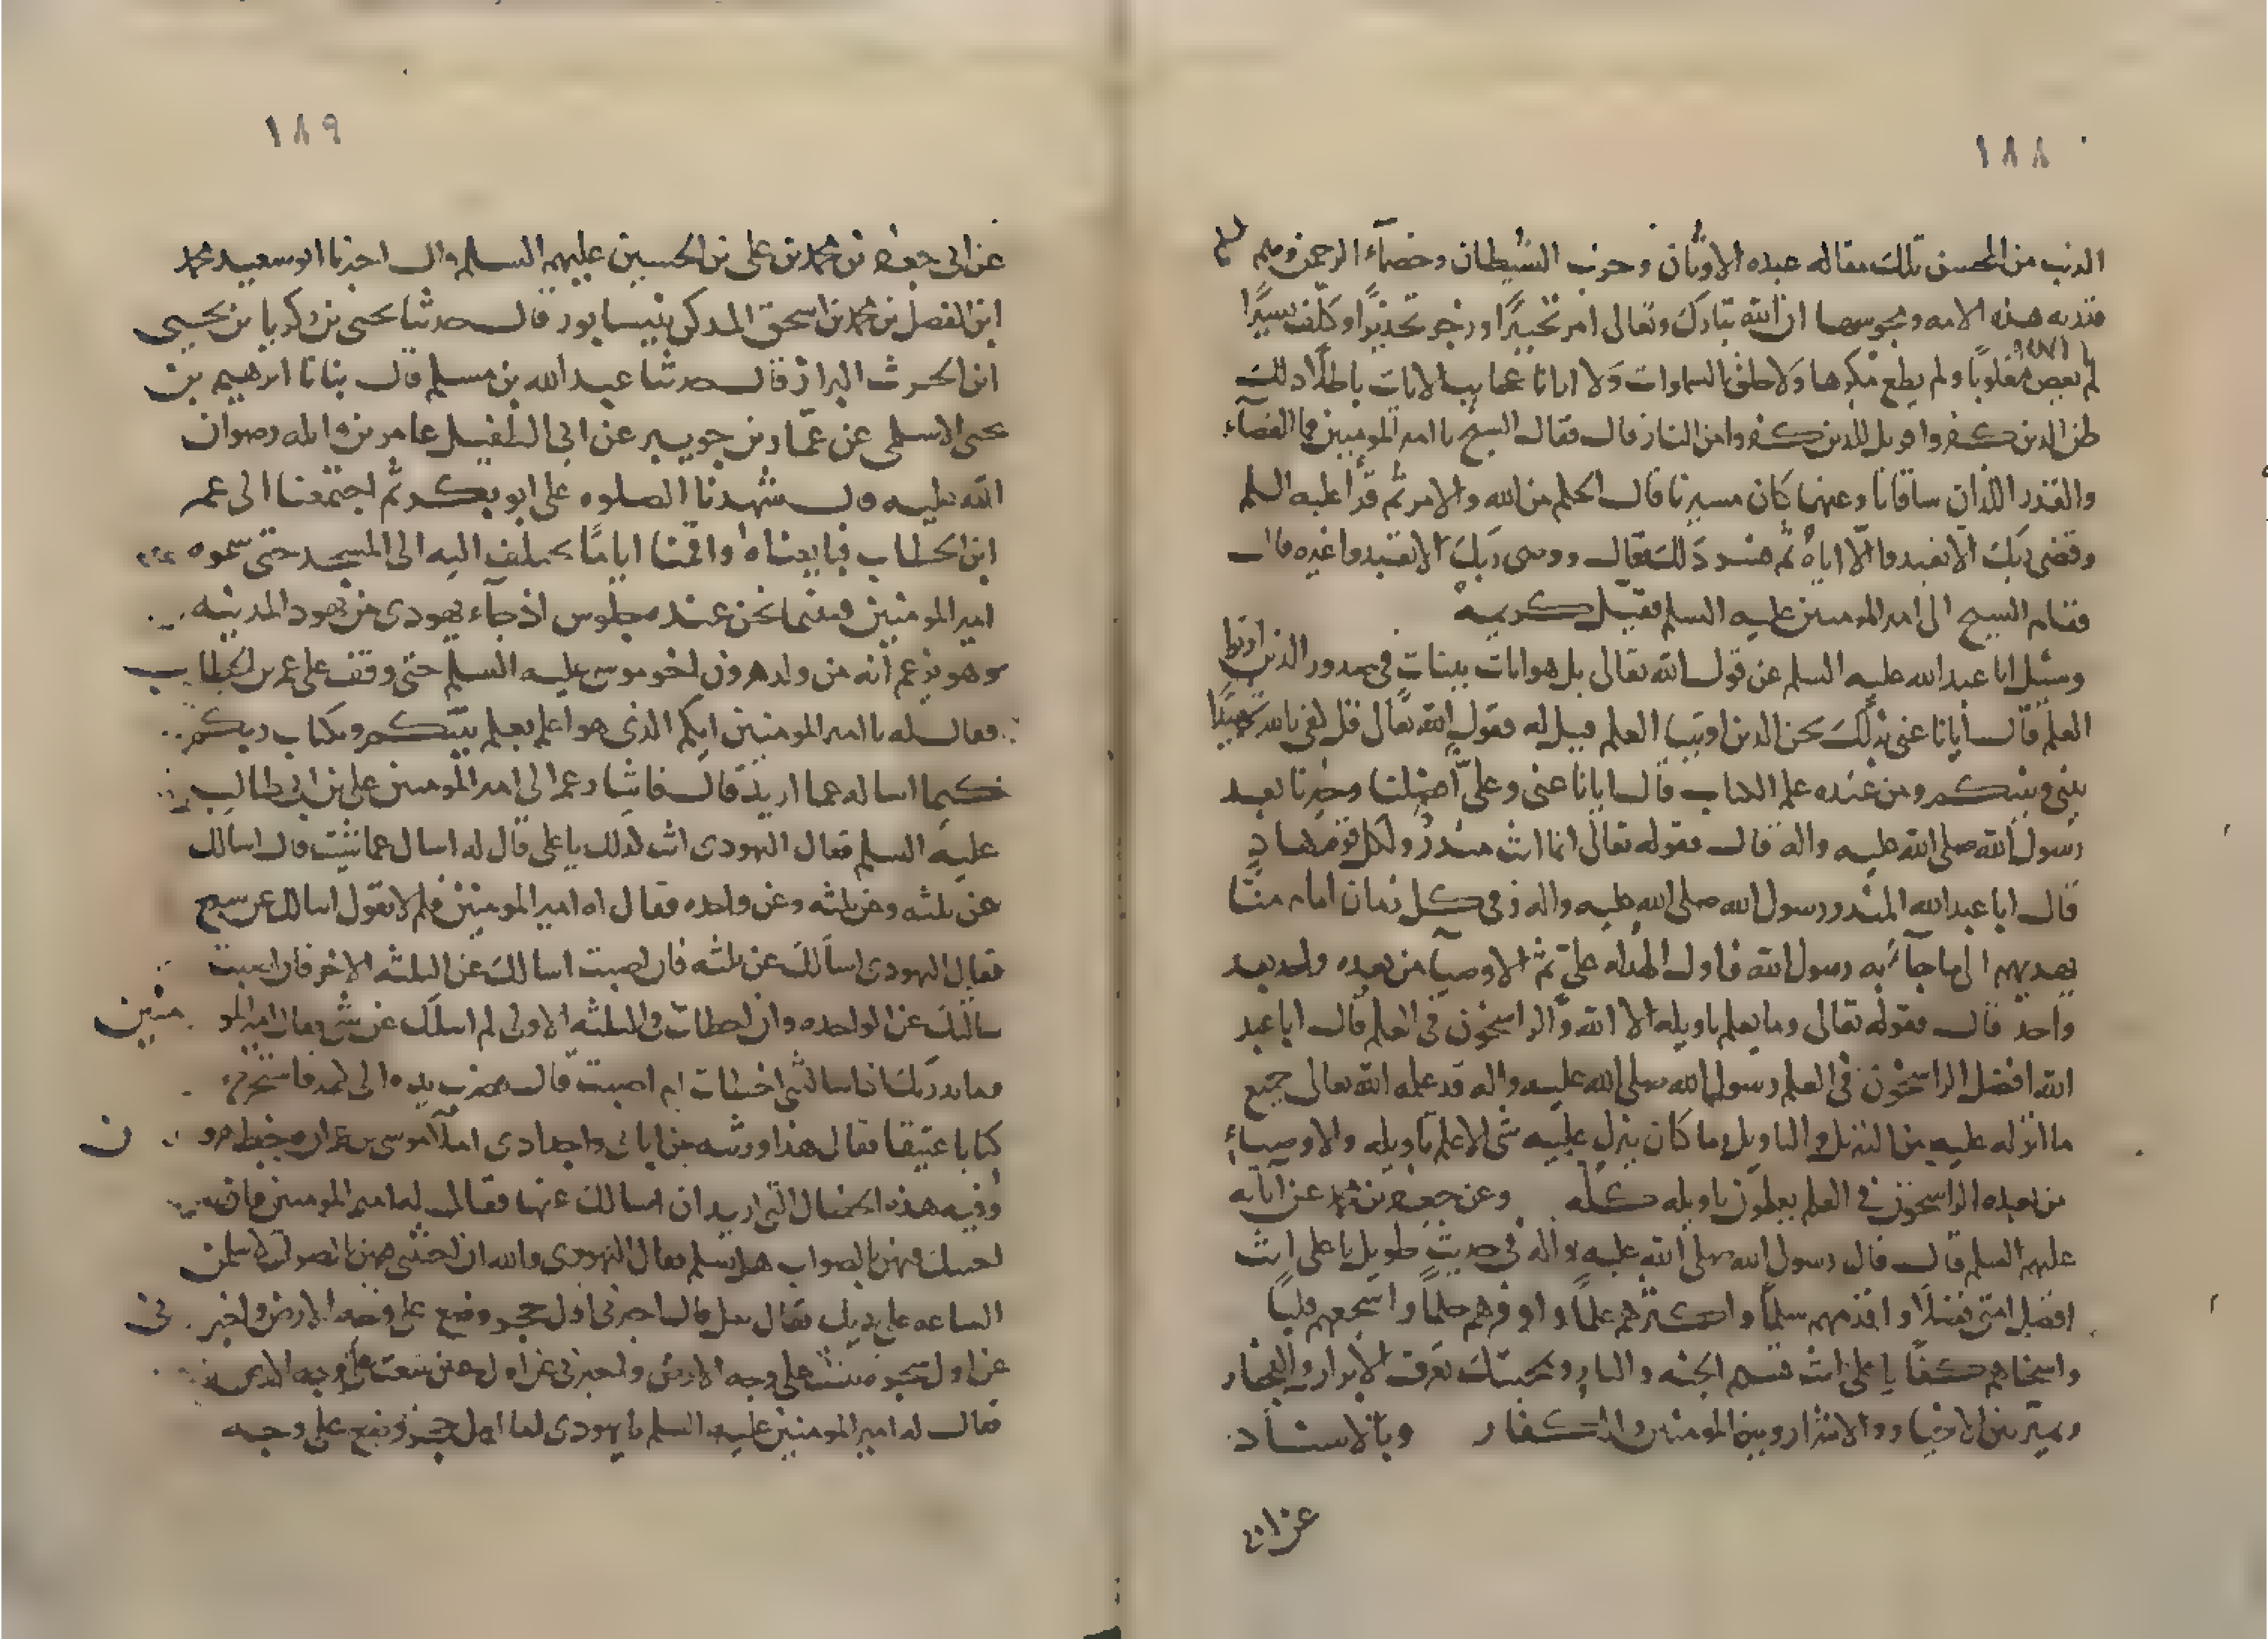 ١٨٨
الذنب من المحسن تلك مقاله عبده الاوثان وحزب الشيطان وخصماء الرحمن وهم
قدريه هذه الامه ومجوسها ان الله تبارك وتعالى امر تخييرًا وزجر تحذيرًا وكلف يسيرًا
لم يعص مغلوبًا ولم يطع مكرها ولا خلق السماوات ولا ارانا عجايب الايات باطلًا ذلك
ظن الذين كفروا فويل للذين كفروا من النار قال فقال الشيخ يا امير المومنين فما القضاء
والقدر اللذان ساقانا وعنهما كان مسيرنا قال الحكم من الله والامر ثم قرأ عليه السلم
وقضى ربك الا تعبدوا الا اياه ثم فسر ذلك فقال ووصى ربك الا تعبدوا غيره قال
فقام الشيخ الى امير المومنين عليه السلم فقبل كريمته
وسئل ابا عبد الله عليه السلم عن قول الله تعالى بل هو ايات بينات في صدور الذين اوتوا
العلم قال ايانا عنى بذلك نحن الذين اوتينا العلم قيل له فقول الله تعالى قل كفى بالله شهيدًا
بينى وبينكم ومن عنده علم الكتاب قال ايانا عنى وعلى افضلنا وخيرنا بعد
رسول الله صلى الله عليه واله قال فقوله تعالى انما انت منذر ولكل قوم هاد
قال ابا عبد الله المنذر رسول الله صلى الله عليه واله وفى كل زمان امام منا
يهديهم الى ما جاء به رسول الله فاول الهداه على ثم الاوصيا من بعده واحد بعد
واحد قال فقوله تعالى وما يعلم تاويله الا الله والراسخون فى العلم قال ابا عبد
الله افضل الراسخون فى العلم رسول الله صلى الله عليه واله قد علمه الله تعالى جميع
ما انزله عليه من التنزيل والتاويل وما كان ينزل عليه شى الا علم تاويله والاوصياء
من بعده الراسخون فى العلم يعلمون تاويله كله وعن جعفر بن محمد عن آبائه
عليهم السلم قال قال رسول الله صلى الله عليه واله فى حديث طويل يا على انت
افضل امتى فضلًا واقدمهم سلمًا واكثرهم علمًا واوفرهم حلمًا واشجعهم قلبًا
واسخاهم كفًا يا على انت قسيم الجنه والنار وبمحبتك تعرف الابرار والفجار
وميز بين الاخيار والاشرار وبين المومنين والكفار وبالاسناد
عن ابى
١٨٩
عن ابى جعفر بن محمد بن على بن الحسين عليهم السلم قال اخبرنا ابو سعيد محمد
ابن الفضل بن محمد بن اسحق المذكر بنيسابور قال حدثنا يحيى بن زكريا بن يحيى
ابن الحرث البزاز قال حدثنا عبد الله بن مسلم قال بنانا ابرهيم بن
يحيى الاسلمى عن عمار بن جوير عن ابى الطفيل عامر بن واثله رضوان
الله عليه قال شهدنا الصلوه على ابو بكر ثم اجتمعنا الى عمر
ابن الخطاب فبايعناه واقمنا ايامًا نختلف اليه الى المسجد حتى سموه
امير المومنين فبينما نحن عنده جلوس اذ جاء يهودى من يهود المدينه
وهو يزعم انه من ولد هرون اخو موسى عليه السلم حتى وقف على عمر بن الخطاب
فقال له يا امير المومنين ايكم الذى هو اعلم بعلم نبيكم وبكتاب ربكم
كيما اساله عما اريد قال فاشار عمر الى امير المومنين على بن ابى طالب
عليه السلم فقال اليهودى انت لذلك يا على قال له اسال عما شيت قال اسالك
عن ثلثه وعن ثلثه وعن واحده فقال له امير المومنين فلم لا تقول اسالك عن سبع
فقال اليهودى اسالك عن ثلثه فان اصبت اسالك عن الثلثه الاخر فان اصبت
سالتك عن الواحده وان اخطات فى الثلثه الاولى لم اسلك عن شى فقال امير المو منين
وما يدريك اذا سالتنى اخطات ام اصبت قال فضرب يده الى كمه فاستخرج
كتابا عتيقا فقال هذا ورثته من ابائى واجدادى املآ موسى بن عمران وخط هرون
وفيه هذه الخصال التى اريد ان اسالك عنها فقال له امير المومنين فان
اجبتك فيهن بالصواب هل تسلم فقال اليهودى والله ان اجبتنى فيهن بالصواب لاسلمن
الساعه على يديك فقال سل قال اخبرنى اول حجر وضع على وجه الارض واخبرنى
عن اول شجره نبتت على وجه الارض واخبرنى عن اول عين نبعت على وجه الارض
فقال له امير المومنين عليه السلم يا يهودى اما اول حجر وضع على وجه